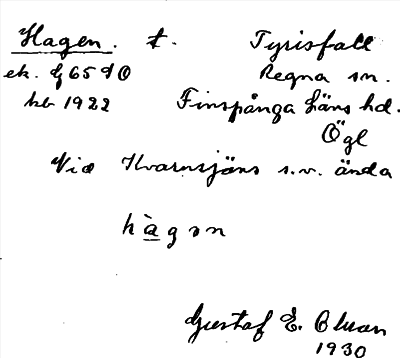 Hagen. t. Tyrisfall
ek. 65 90 Regna sn.
hbr 1922 Finspånga läns hd.
Ögl
Vid Kvarnsjöns s.v. ända
hàgən
Gustaf E. Olman
1930